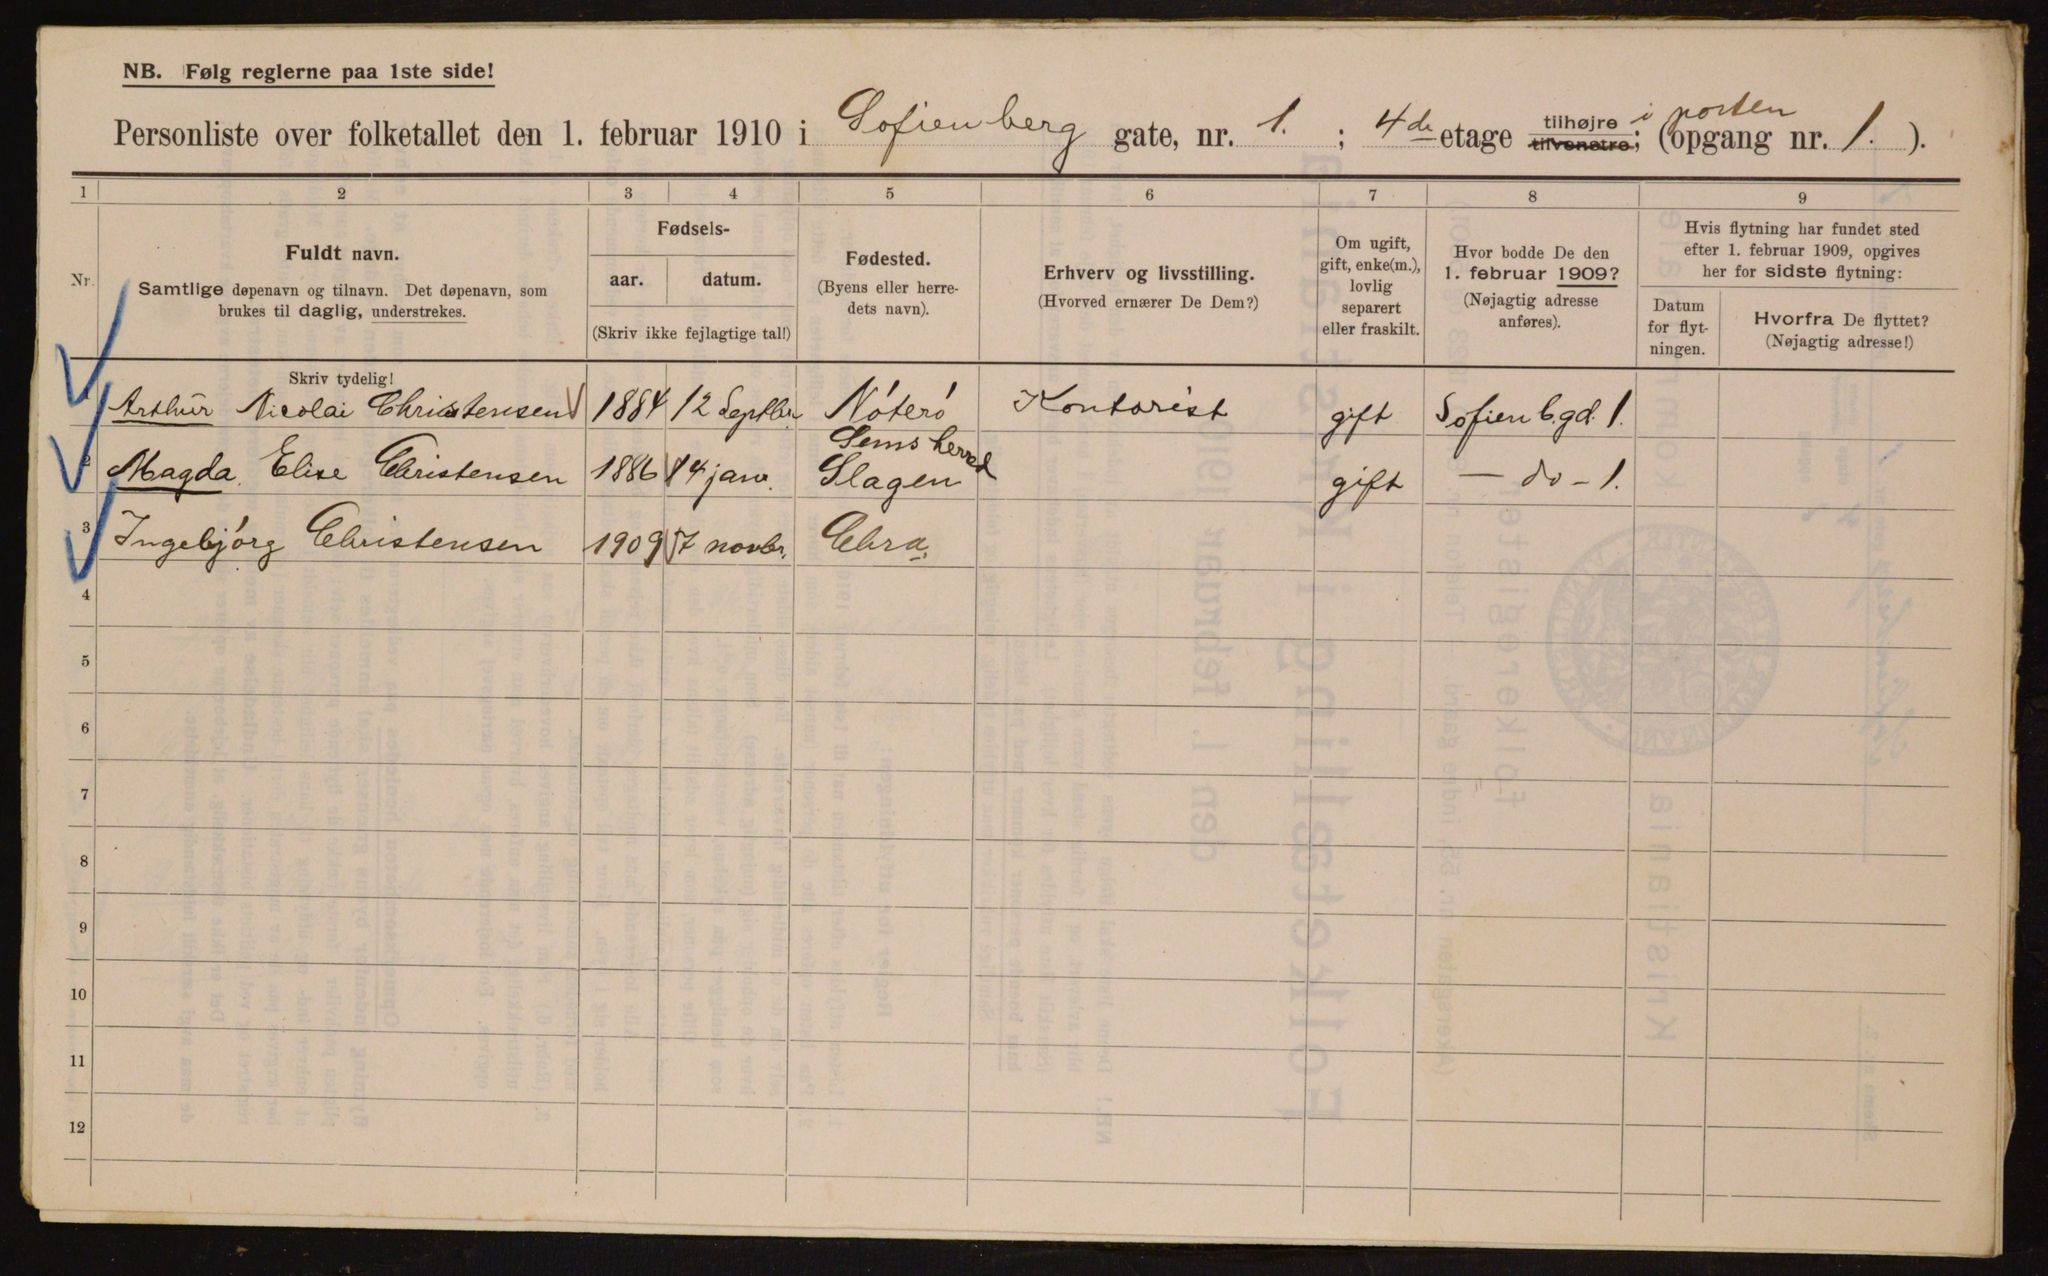 NB. Følg reglerne paa 1ste side!
Personliste over folketallet den 1. februar 1910 i Sofienberg gate, nr. 1. ; 4de etage tilhøjre tilvenstre; i porten (opgang nr. 1. ).
1 2 3 4 5 6 7 8 9
Nr.
Fuldt navn.
Samtlige døpenavn og tilnavn. Det døpenavn, som
brukes til daglig, understrekes.
Skriv tydelig!
Fødsels-
aar. datum.
(Skriv ikke fejlagtige tal!)
Fødested.
(Byens eller herre-
dets navn).
Erhverv og livsstilling.
(Hvorved ernærer De Dem?)
Om ugift,
gift, enke(m.),
lovlig
separert
eller fraskilt.
Hvor bodde De den
1. februar 1909?
(Nøjagtig adresse
anføres).
Hvis flytning har fundet sted
efter 1. februar 1909, opgives
her for sidste flytning:
Datum
for flyt-
ningen.
Hvorfra De flyttet?
(Nøjagtig adresse!)
Arthur Nicolai Christensen 1884 12 Septbr. Nóteró Kontorist gift Sofienb.gd. 1.
Sems herred
2 Magda Elise Christensen 1886 14 jan. Slagen gift — do — 1.
3 Ingebjórg Christensen 1909 7 novbr. Chra.
4
5
6
7
8
9
10
11
12